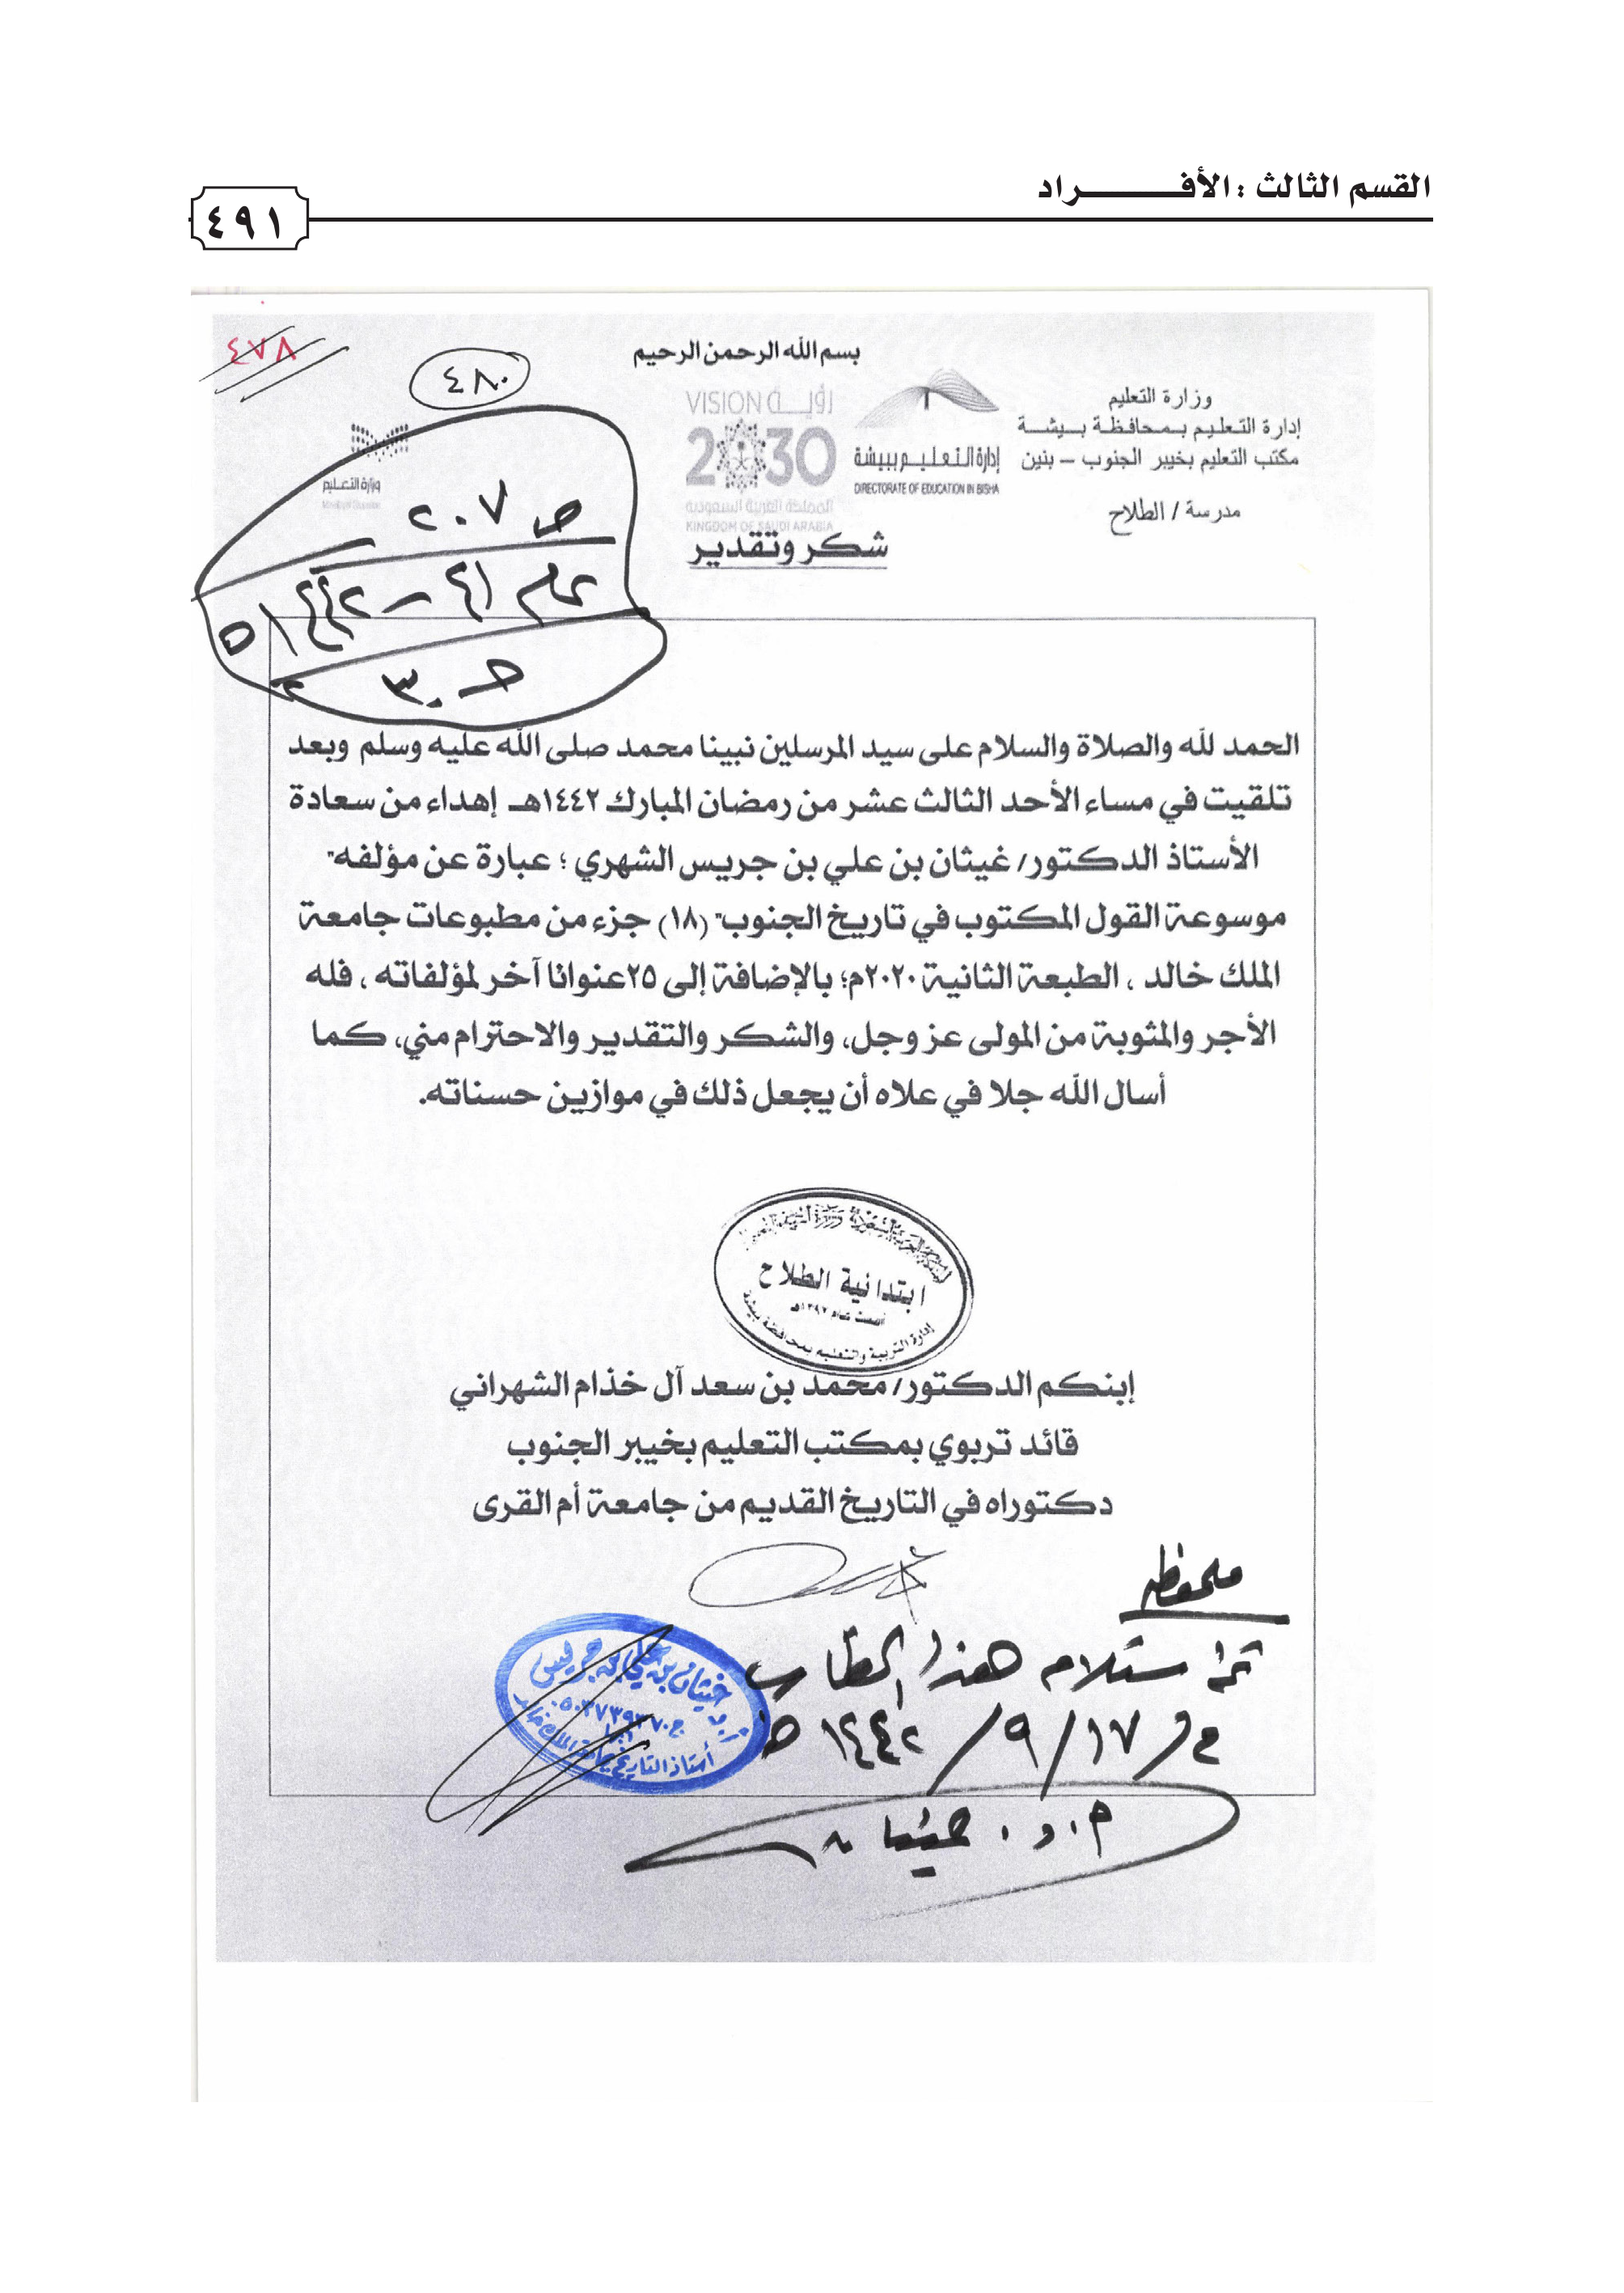 القسم الثالث : الأفـــــــــراد
٤٩١
٤٧٨
٤٨٠
بسم الله الرحمن الرحيم
وزارة التعليم
إدارة التعليم بمحافظة بيشة
مكتب التعليم بخيبر الجنوب – بنين
مدرسة / الطلاح
إدارة التعليم ببيشة
DIRECTORATE OF EDUCATION IN BISHA
VISION رؤيـــة
2030
المملكة العربية السعودية
KINGDOM OF SAUDI ARABIA
وزارة التعليم
شكر وتقدير
ص ٢٠٧
الحمد لله والصلاة والسلام على سيد المرسلين نبينا محمد صلى الله عليه وسلم وبعد
تلقيت في مساء الأحد الثالث عشر من رمضان المبارك ١٤٤٢هـ إهداء من سعادة
الأستاذ الدكتور/ غيثان بن علي بن جريس الشهري ؛ عبارة عن مؤلفه"
موسوعة القول المكتوب في تاريخ الجنوب" (١٨) جزء من مطبوعات جامعة
الملك خالد ، الطبعة الثانية ٢٠٢٠م؛ بالإضافة إلى ٢٥عنوانا آخر لمؤلفاته ، فله
الأجر والمثوبة من المولى عز وجل، والشكر والتقدير والاحترام مني، كما
أسال الله جلا في علاه أن يجعل ذلك في موازين حسناته.
ابتدائية الطلاح
إدارة التربية والتعليم بمحافظة بيشة
إبنكم الدكتور/ محمد بن سعد آل خذام الشهراني
قائد تربوي بمكتب التعليم بخيبر الجنوب
دكتوراه في التاريخ القديم من جامعة أم القرى
ملحوظه
تم استلام هذا الخطاب
في ١٧/ ٩/ ١٤٤٢ هـ
أ.د. غيثان
أ.د غيثان بن علي بن جريس
أستاذ التاريخ بجامعة الملك خالد